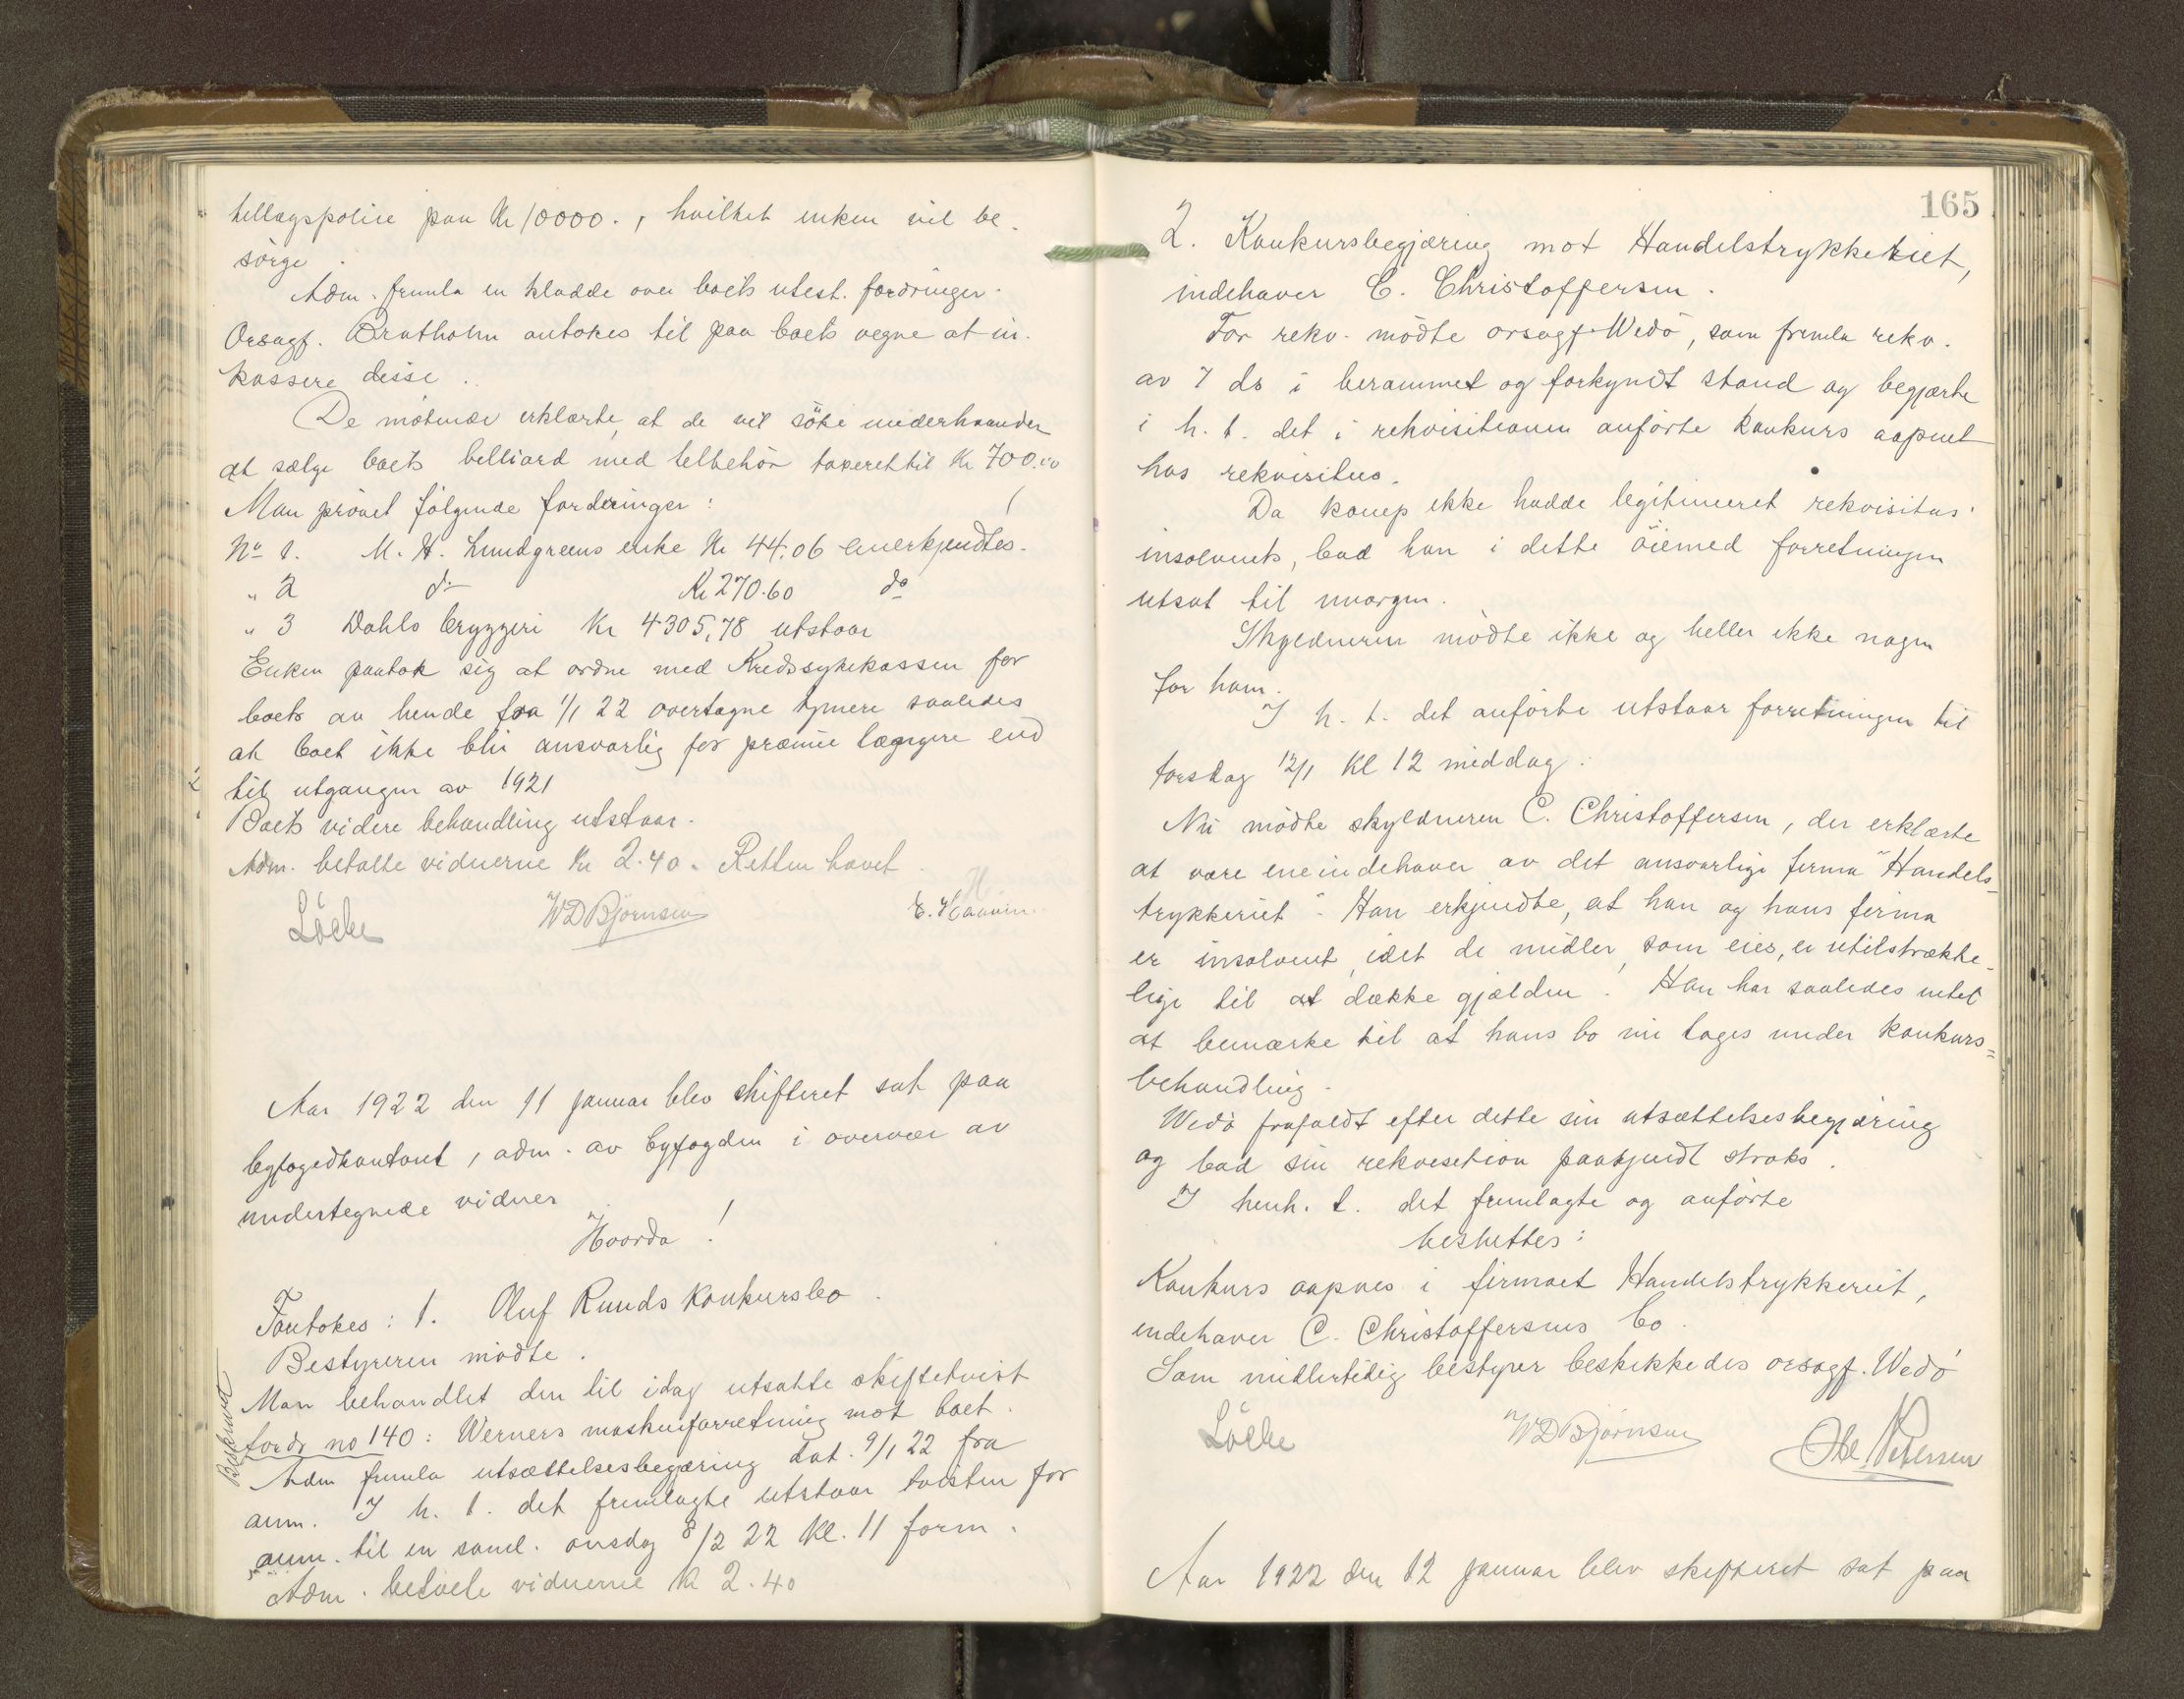 tillægspolice paa Kr 10000., hvilket enken vil be-
sørge.
Adm. fremla en kladde over boets utest. fordringer.
Orsagf. Bratholm antokes til paa boets vegne at in-
kassere disse.
De møtende erklærte, at de vil söke underhaanden
at sælge boets billiard med tilbehör taxeret til Kr 700.00
Man prövet fölgende fordringer:
No 1. M. H. Lundgreens enke Kr 44.06 anerkjendtes.
" 2 do Kr 270.60 do
" 3 Dahls bryggeri Kr 4305,78 utstaar
Enken paatok sig at ordne med Kredssykekassen for
boets av hende fra 1/1 22 overtagne tjenere saaledes
at boet ikke blir ansvarlig for præmie længere end
til utgangen av 1921
Boets videre behandling utstaar.
Adm. betalte vidnerne Kr 2.40. Retten hævet
WDBjörnsen
Aar 1922 den 11 januar blev skifteret sat paa
byfogedkontoret, adm. av byfogden i overvær av
undertegnede vidner
Hvorda!
Foretokes: 1. Oluf Ruuds konkursbo.
Bestyreren mödte.
Man behandlet den til idag utsatte skiftetvist
Beskrevet
fordr no 140: Werners maskinforretning mot boet.
Adm fremla utsættelsesbegjæring dat. 9/1 22 fra
anm. I h. t. det fremlagte utstaar tvisten for
anm. til en saml. onsdag 8/2 22 Kl. 11 form.
Adm. betalte vidnerne Kr 2.40
165
2. Konkursbegjæring mot Handelstrykkeriet,
indehaver C. Christoffersen.
For rekv. mödte orsagf. Wedö, som fremla rekv.
av 7 ds i berammet og forkyndt stand og begjærte
i h. t. det i rekvisitionen anförte konkurs aapnet
hos rekvisitus.
Da komp ikke hadde legitimeret rekvisitus'
insolvents, bad han i dette öiemed forretningen
utsat til imorgen.
Skyldneren mödte ikke og heller ikke nogen
for ham.
I h. t. det anförte utstaar forretningen til
torsdag 12/1 Kl 12 middag.
Nu mödte skyldneren C. Christoffersen, der erklærte
at være eneindehaver av det ansvarlige firma "Handels-
trykkeriet". Han erkjendte, at han og hans firma
er insolvent, idet de midler, som eies, er utilstrække-
lige til at dække gjælden. Han har saaledes intet
at bemærke til at hans bo nu tages under konkurs=
behandling.
Wedö frafaldt efter dette sin utsættelsesbegjæring
og bad sin rekvisition paakjendt straks.
I henh. t. det fremlagte og anförte
besluttes:
Konkurs aapnes i firmaet Handelstrykkeriet,
indehaver C. Christoffersens bo.
Som midlertidig bestyrer beskikkedes orsagf. Wedö
WDBjörnsen
Aar 1922 den 12 januar blev skifteret sat paa